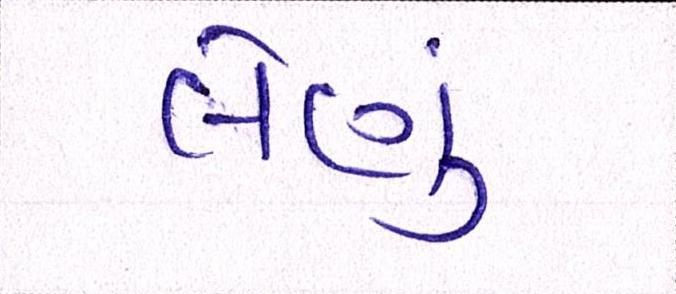 લેણું